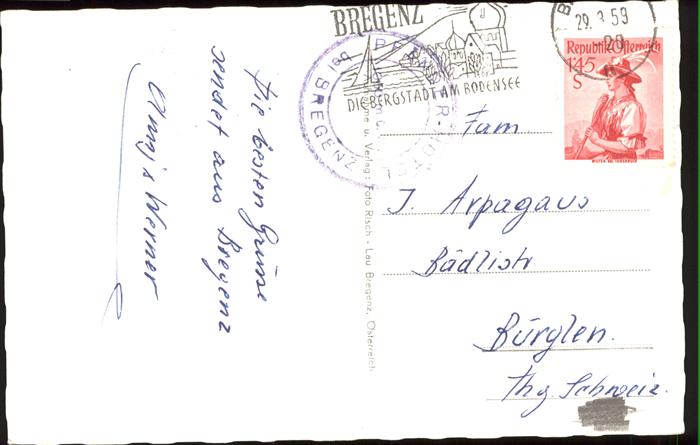 BREGENZ
DIE BERGSTADT AM BODENSEE
29. 3. 59
20
Republik Österreich
1'45
S
WILTEN BEI INNSBRUCK
bei BREGENZ
u. Verlag: Foto Risch - Lau Bregenz, Österreich
Die besten Grüsse
sendet aus Bregenz
Werner
Fam.
J. Arpagaus
Bädlistr
Bürglen.
Thg. Schweiz.